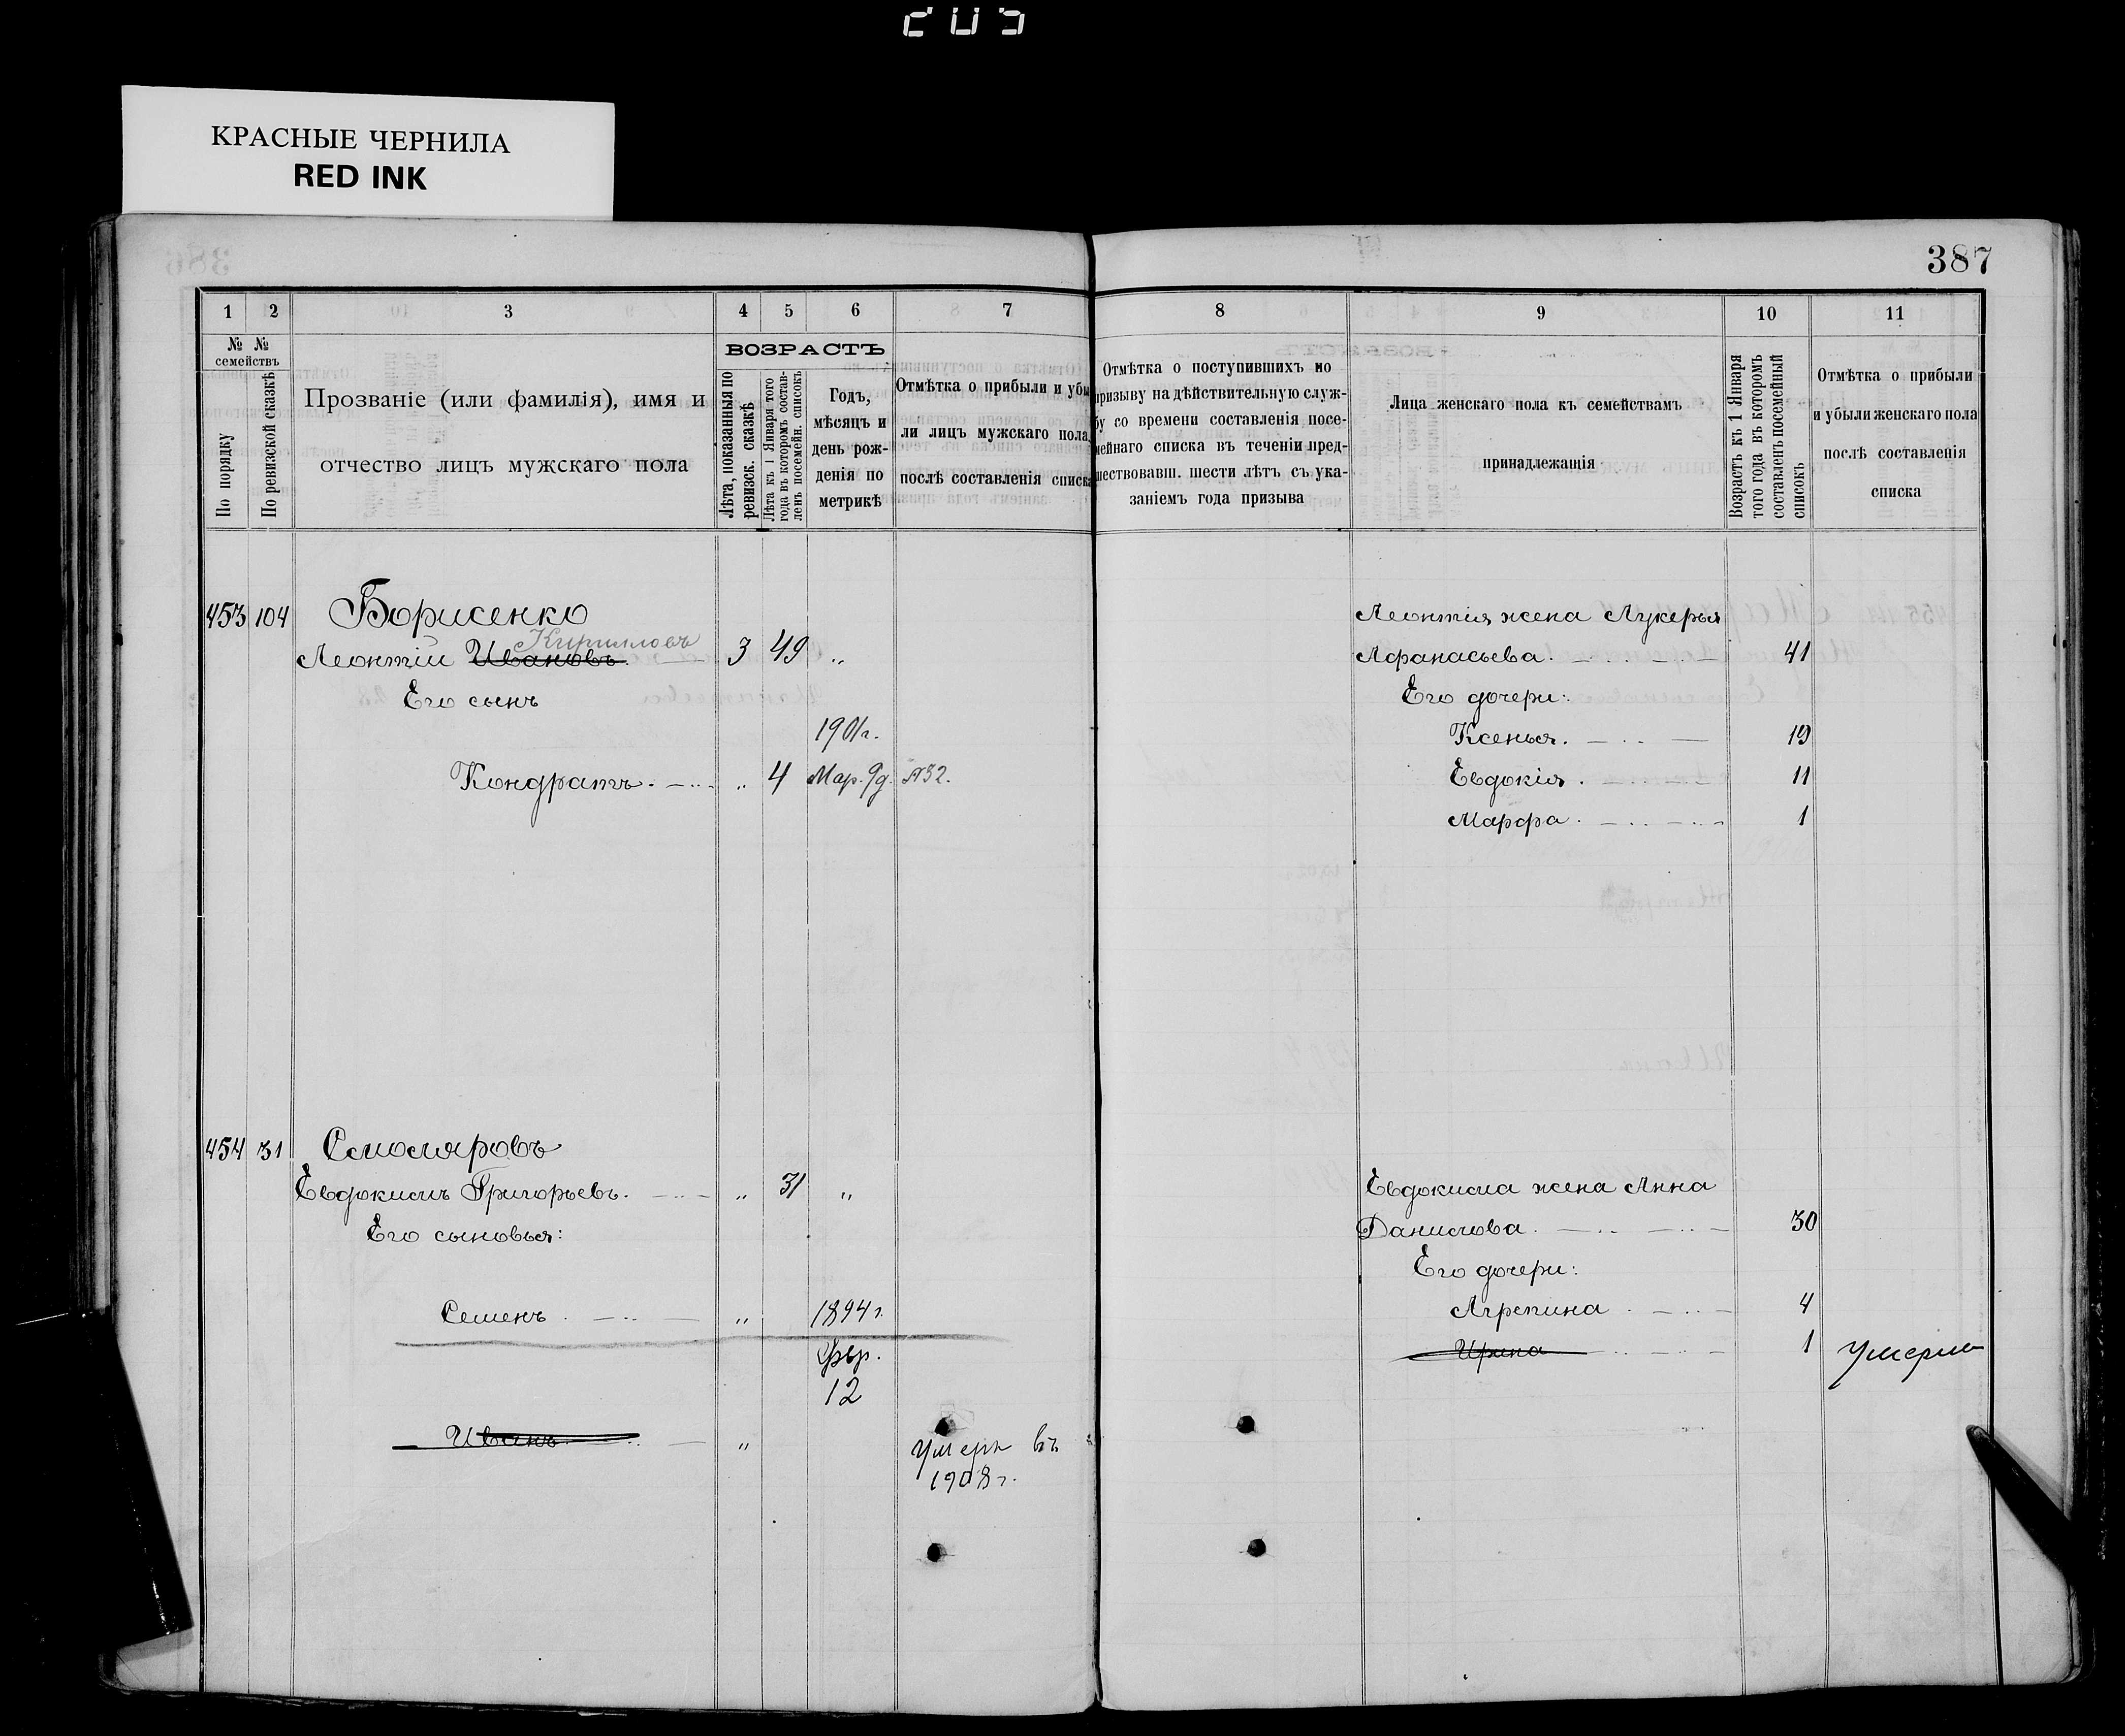 205
КРАСНЫЕ ЧЕРНИЛА
RED INK
387
1 2 3 4 5 6 7
№ № семействъ
По порядку
По ревизской сказкѣ
Прозваніе (или фамилія), имя и
отчество лицъ мужскаго пола
ВОЗРАСТЪ
Лѣта, показанныя по
ревизск. сказкѣ
Лѣта къ 1 Января того
года въ которомъ состав-
ленъ посемейн. списокъ
Годъ,
мѣсяцъ и
день рож-
денія по
метрикѣ
Отмѣтка о прибыли и убы
ли лицъ мужскаго пола
послѣ составленія списка
453 104 Борисенко
Кирилловъ
Леонтій Ивановъ. 3 49 „
Его сынъ
1901г.
Кондратъ. „ 4 Мар. 9д. №32.
454 31
Евдокимъ Григорьевъ. „ 31 „
Его сыновья:
Семенъ „ 1894 г.
Февр.
12
Иванъ „ Умеръ въ
1908 г.
8 9 10 11
Отмѣтка о поступившихъ по
призыву на дѣйствительную служ-
бу со времени составленія посе-
мейнаго списка въ теченіи пред-
шествовавш. шести лѣтъ съ ука-
заніемъ года призыва
Лица женскаго пола къ семействамъ
принадлежащія
Возрастъ къ 1 Января
того года въ которомъ
составленъ посемейный
списокъ
Отмѣтка о прибыли
и убыли женскаго пола
послѣ составленія
списка
Леонтія жена Лукерья
Афанасьева. 41
Его дочери:
Ксенья. 19
Евдокія. 11
Марфа. 1
Евдокима жена Анна
Данилова. 30
Его дочери:
Агрепина 4
Ирина 1 Умерла